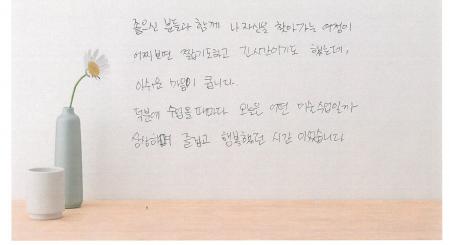 좋으신 분들과 함께 나 자신을 찾아가는 여정이
어찌보면 짧기도하고 긴시간이기도 했는데,
아쉬운 마음이 큽니다.
덕분에 수업을 때마다 오늘은 어떤 미술수업일까
상상하며 즐겁고 행복했던 시간 이었습니다